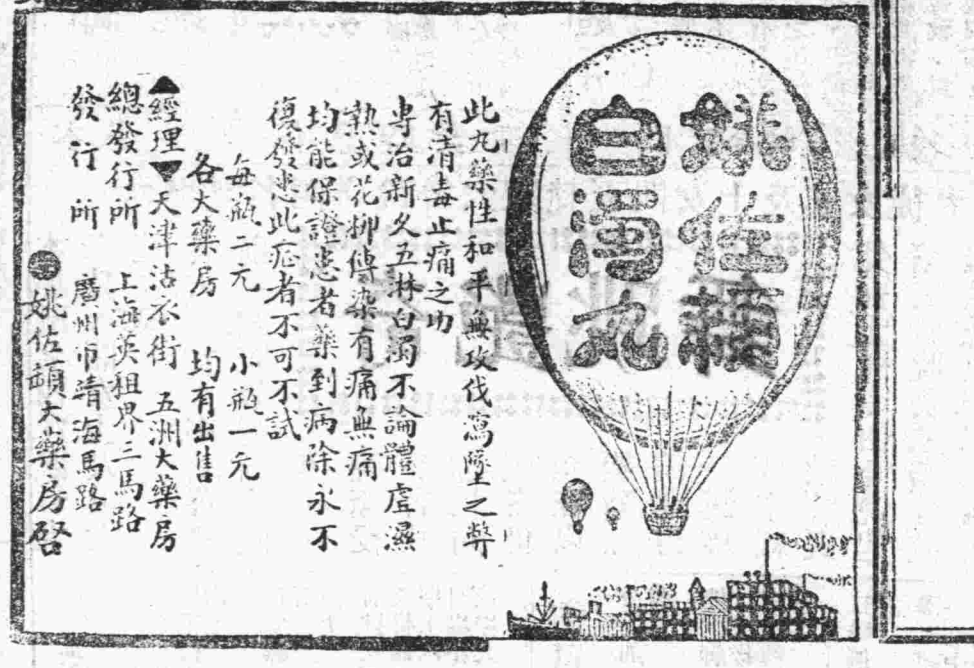 姚佐頓
白濁丸
此丸藥性和平無攻伐瀉墜之弊
有清毒止痛之功
專治新久五淋白濁不論體虛濕
熱或花柳傳染有痛無痛
均能保證患者藥到病除永不
復發患此症者不可不試
每瓶二元 小瓶一元
各大藥房 均有出售
▲經理▼天津沽衣街 五洲大藥房
總發行所 上海英租界三馬路
發行所 廣州市靖海馬路
姚佐頓大藥房啓